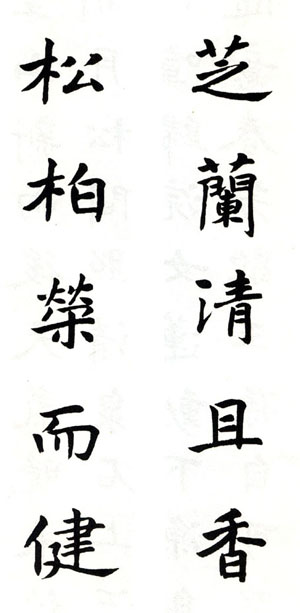 芝蘭清且香
松柏榮而健